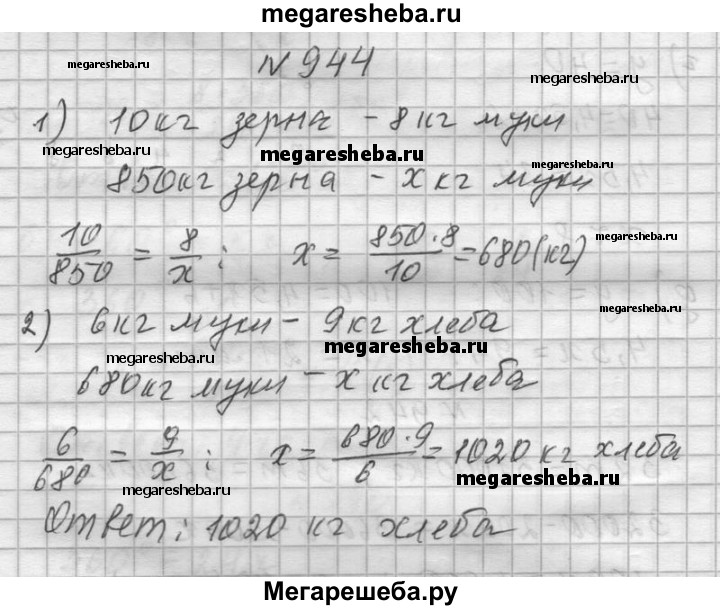 megaresheba.ru
№ 944
megaresheba.ru
megaresheba.ru
1) 10 кг зерна - 8 кг муки
megaresheba.ru megaresheba.ru
megaresheba.ru
850 кг зерна - x кг муки
10/850 = 8/x ; x = 850·8/10 = 680 (кг)
megaresheba.ru
megaresheba.ru
2) 6 кг муки - 9 кг хлеба
megaresheba.ru megaresheba.ru
680 кг муки - x кг хлеба
6/680 = 9/x ; x = 680·9/6 = 1020 кг хлеба
megaresheba.ru megaresheba.ru
Ответ: 1020 кг хлеба
Мегарешеба.ру